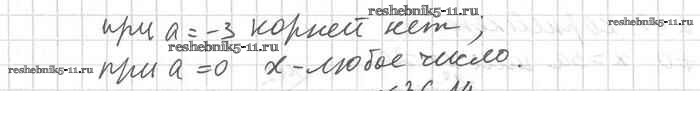 reshebnik5-11.ru
при a = -3 корней нет;
reshebnik5-11.ru
reshebnik5-11.ru
при a = 0 x - любое число.
reshebnik5-11.ru